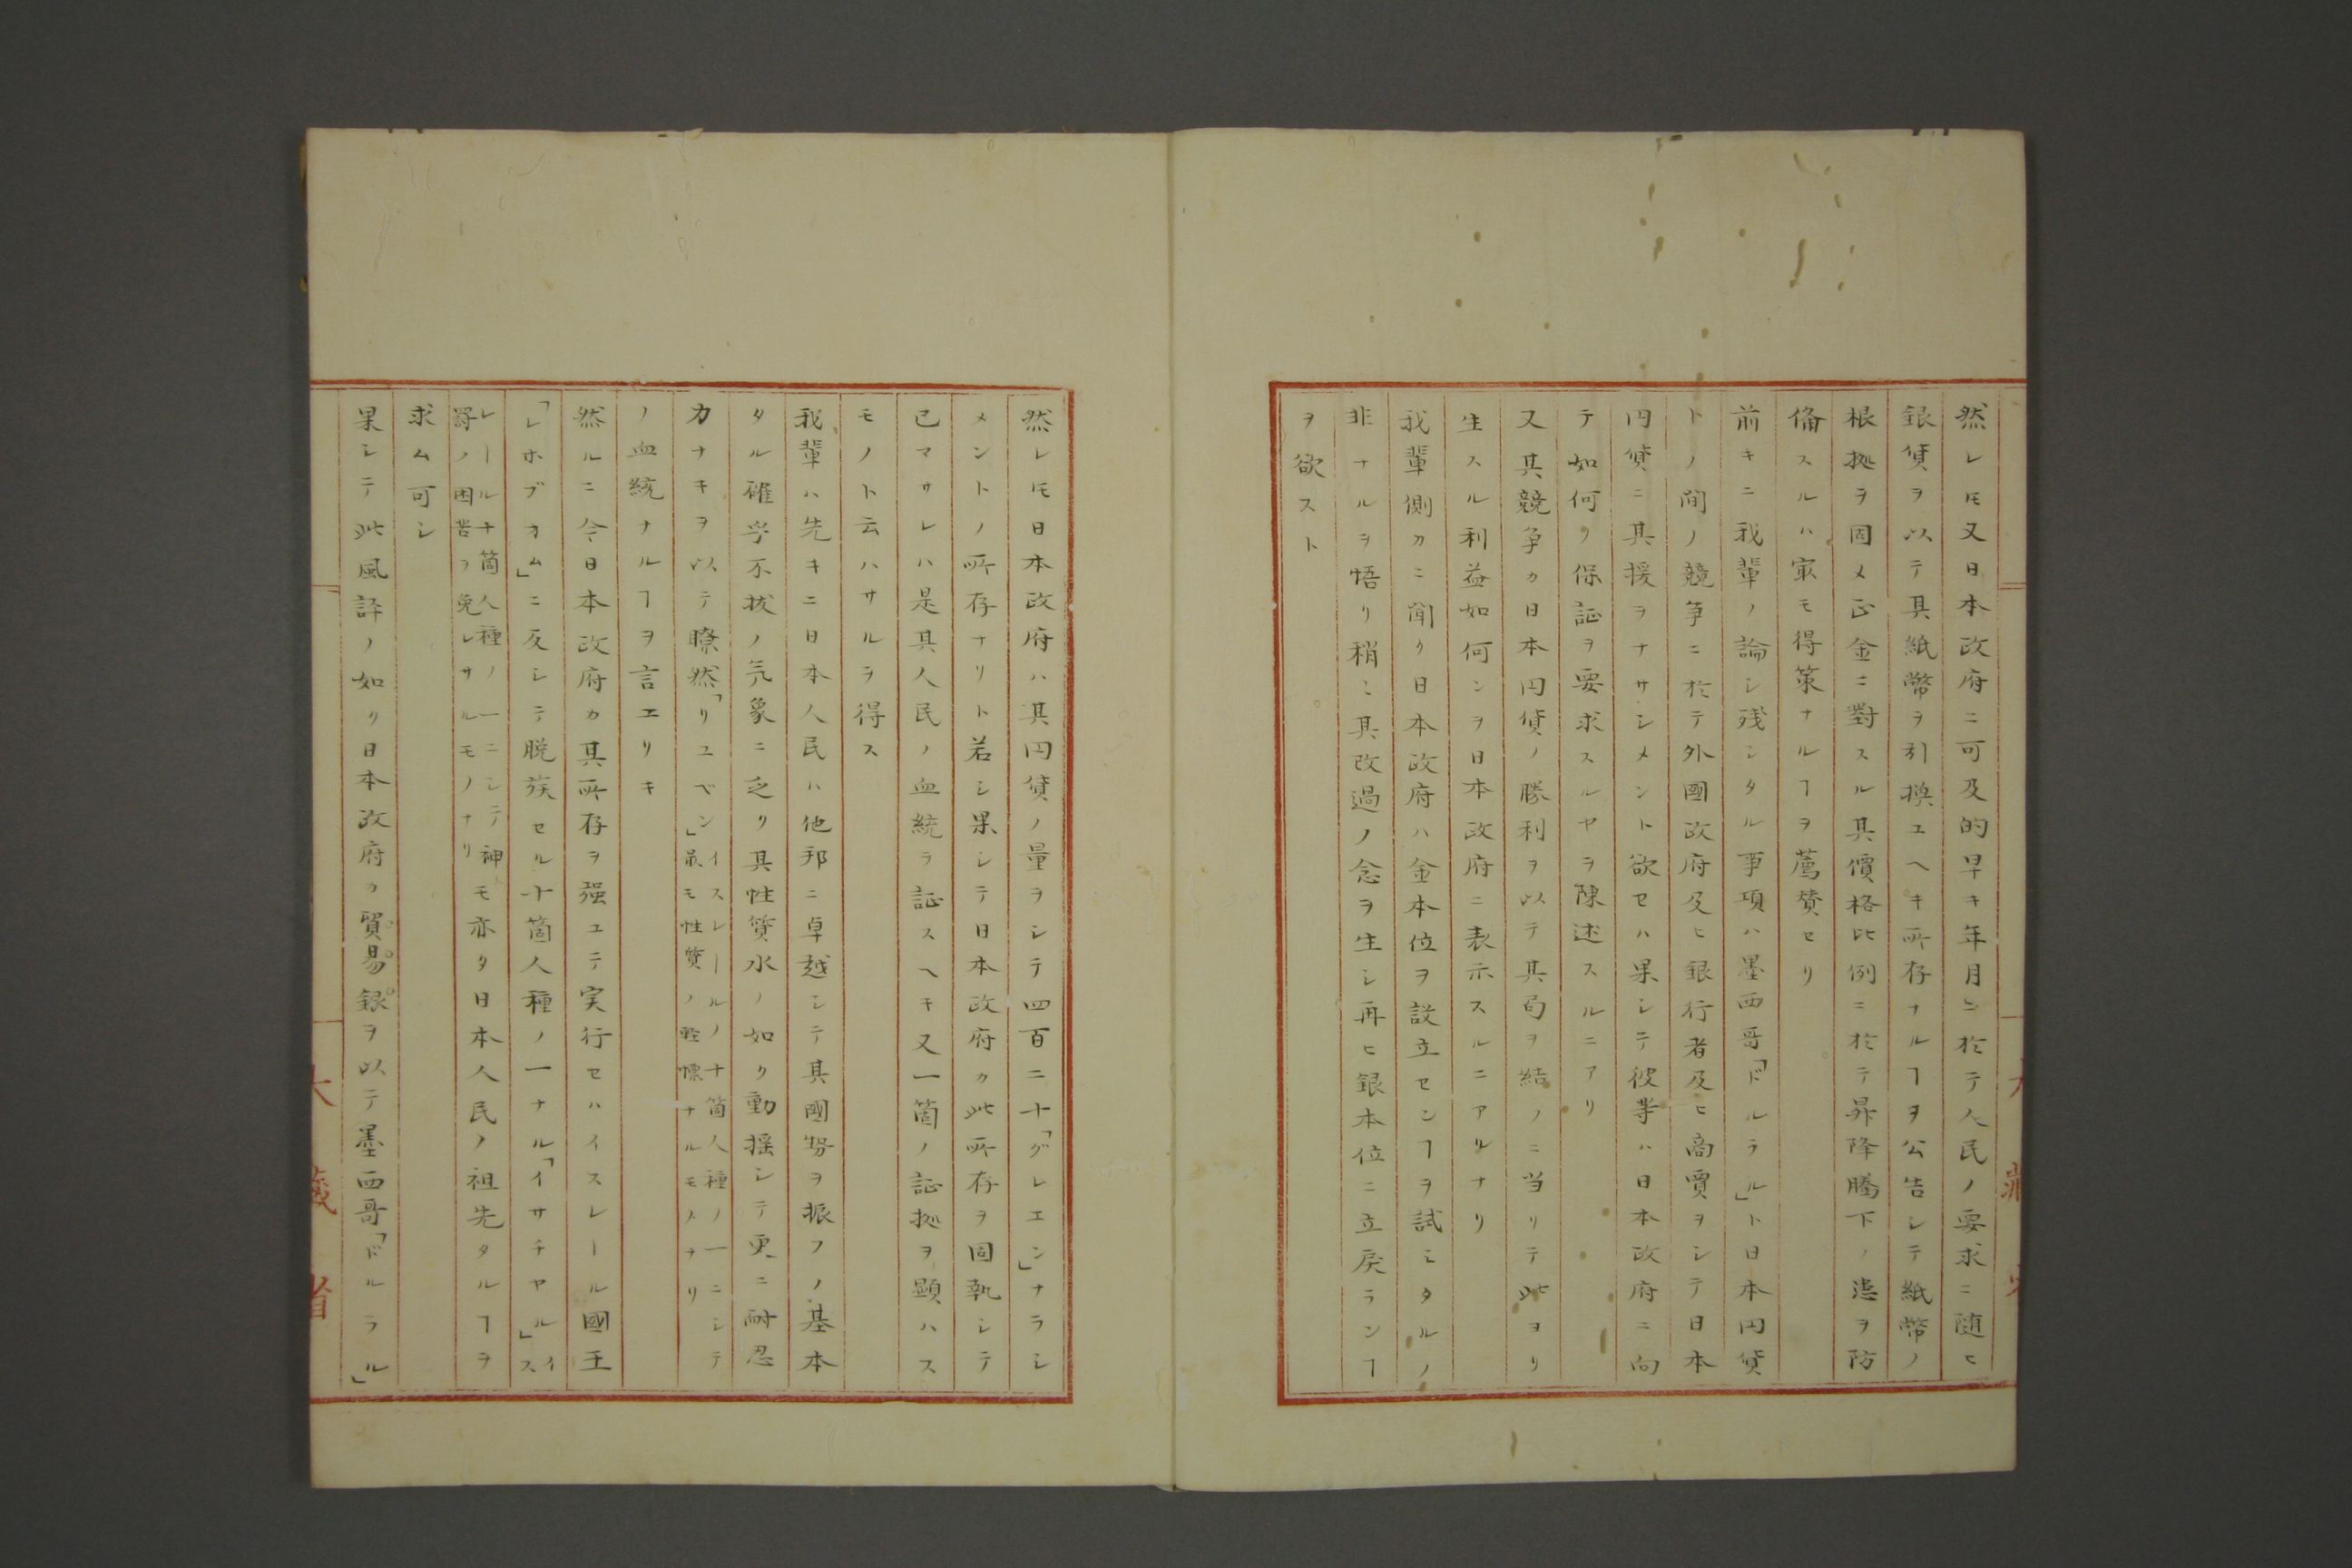 然レ𪜈又日本政府ニ可及的早キ年月ニ於テ人民ノ要求ニ随ヒ
銀貨ヲ以テ其紙幣ヲ引換ユヘキ所存ナルヿヲ公告シテ紙幣ノ
根拠ヲ固メ正金ニ對スル其價格比例ニ於テ昇降騰下ノ患ヲ防
備スルハ㝡モ得策ナルヿヲ薦賛セリ
前キニ我輩ノ論シ残シタル事項ハ墨西哥「ドルラル」ト日本円貨
トノ間ノ競争ニ於テ外國政府及ヒ銀行者及ヒ商賈ヲシテ日本
円貨ニ其援ヲナサシメント欲セハ果シテ彼等ハ日本政府ニ向
テ如何ノ保証ヲ要求スルヤヲ陳述スルニアリ
又其競争カ日本円貨ノ勝利ヲ以テ其局ヲ結ノニ当リテ此ヨリ
生スル利益如何ンヲ日本政府ニ表示スルニアルナリ
我輩側カニ聞ク日本政府ハ金本位ヲ設立センヿヲ試ミタルノ
非ナルヲ悟リ稍ミ其改過ノ念ヲ生シ再ヒ銀本位ニ立戻ランヿ
ヲ欲スト
然レ𪜈日本政府ハ其円貨ノ量ヲシテ四百二十「グレエン」ナラシ
メントノ所存ナリト若シ果シテ日本政府カ此所存ヲ固執シテ
已マサレハ是其人民ノ血統ヲ証スヘキ又一箇ノ証拠ヲ顕ハス
モノト云ハサルヲ得ス
我輩ハ先キニ日本人民ハ他邦ニ卓越シテ其國勢ヲ振フノ基本
タル確乎不抜ノ気象ニ乏ク其性質水ノ如ク動揺シテ更ニ耐忍
力ナキヲ以テ瞭然「リユベン」イスレールノ十箇人種ノ一ニシテ
最モ性質ノ軽慓ナルモノナリ
ノ血統ナルヿヲ言エリキ
然ルニ今日本政府カ其所存ヲ強ユテ実行セハイスレール國王
「レホブオム」ニ反シテ脱族セル十箇人種ノ一ナル「イサチヤル」イ
ス
レール十箇人種ノ一ニシテ
罸ノ困苦ヲ免レサルモノナリ
神モ亦タ日本人民ノ祖先タルヿヲ
求ム可シ
果シテ此風評ノ如ク日本政府カ貿易銀ヲ以テ墨西哥「ドルラル」
大藏省